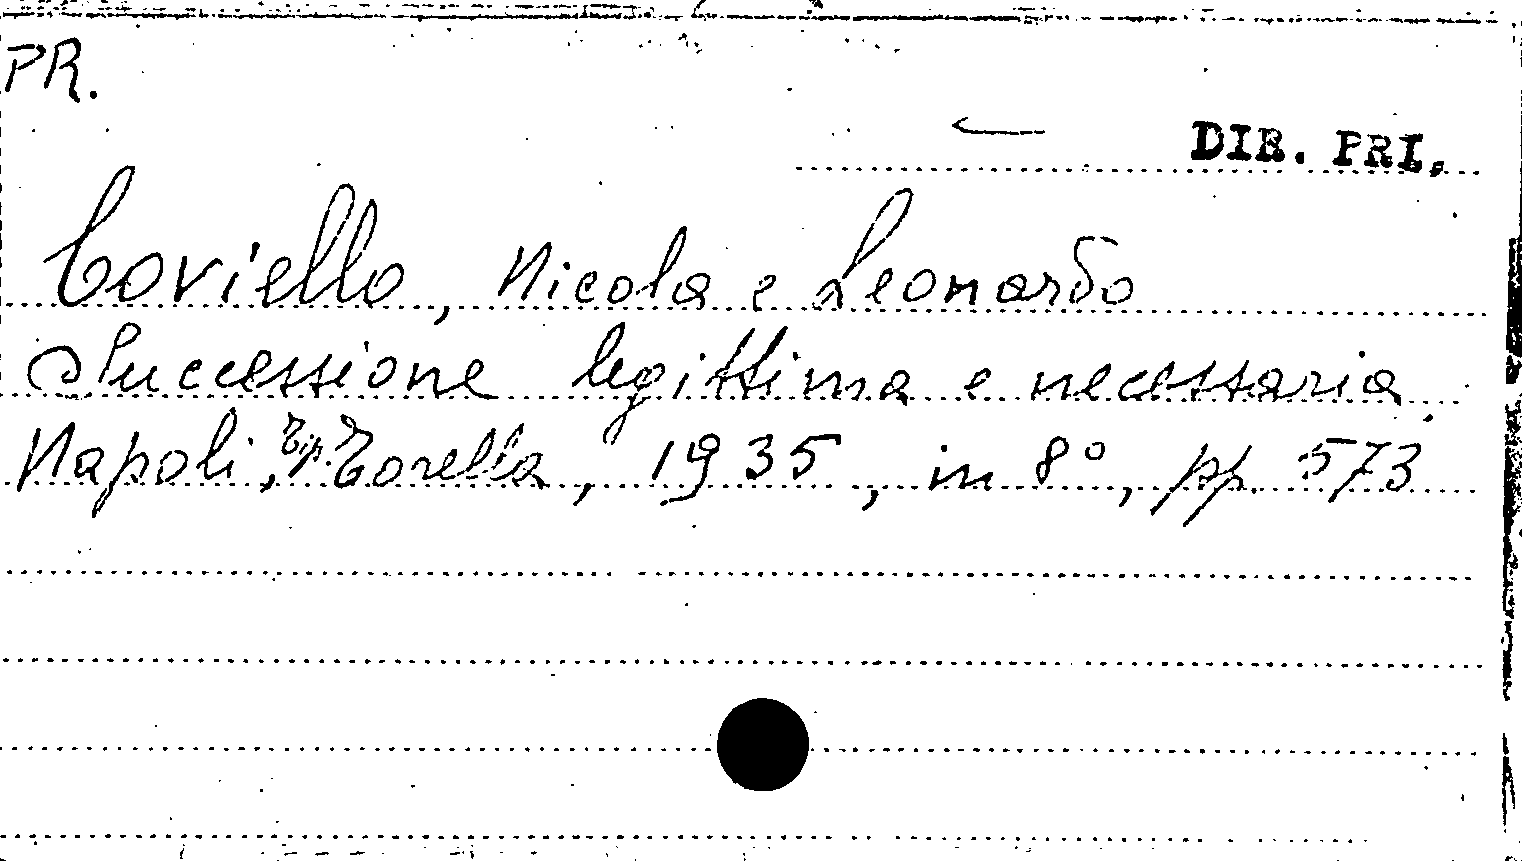 PR.
DIR. PRI.
Coviello, Nicola e Leonardo
Successione legittima e necessaria.
Napoli, Tip. Torella, 1935, in 8º, pp. 573